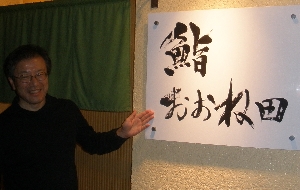 鮨
おおね田